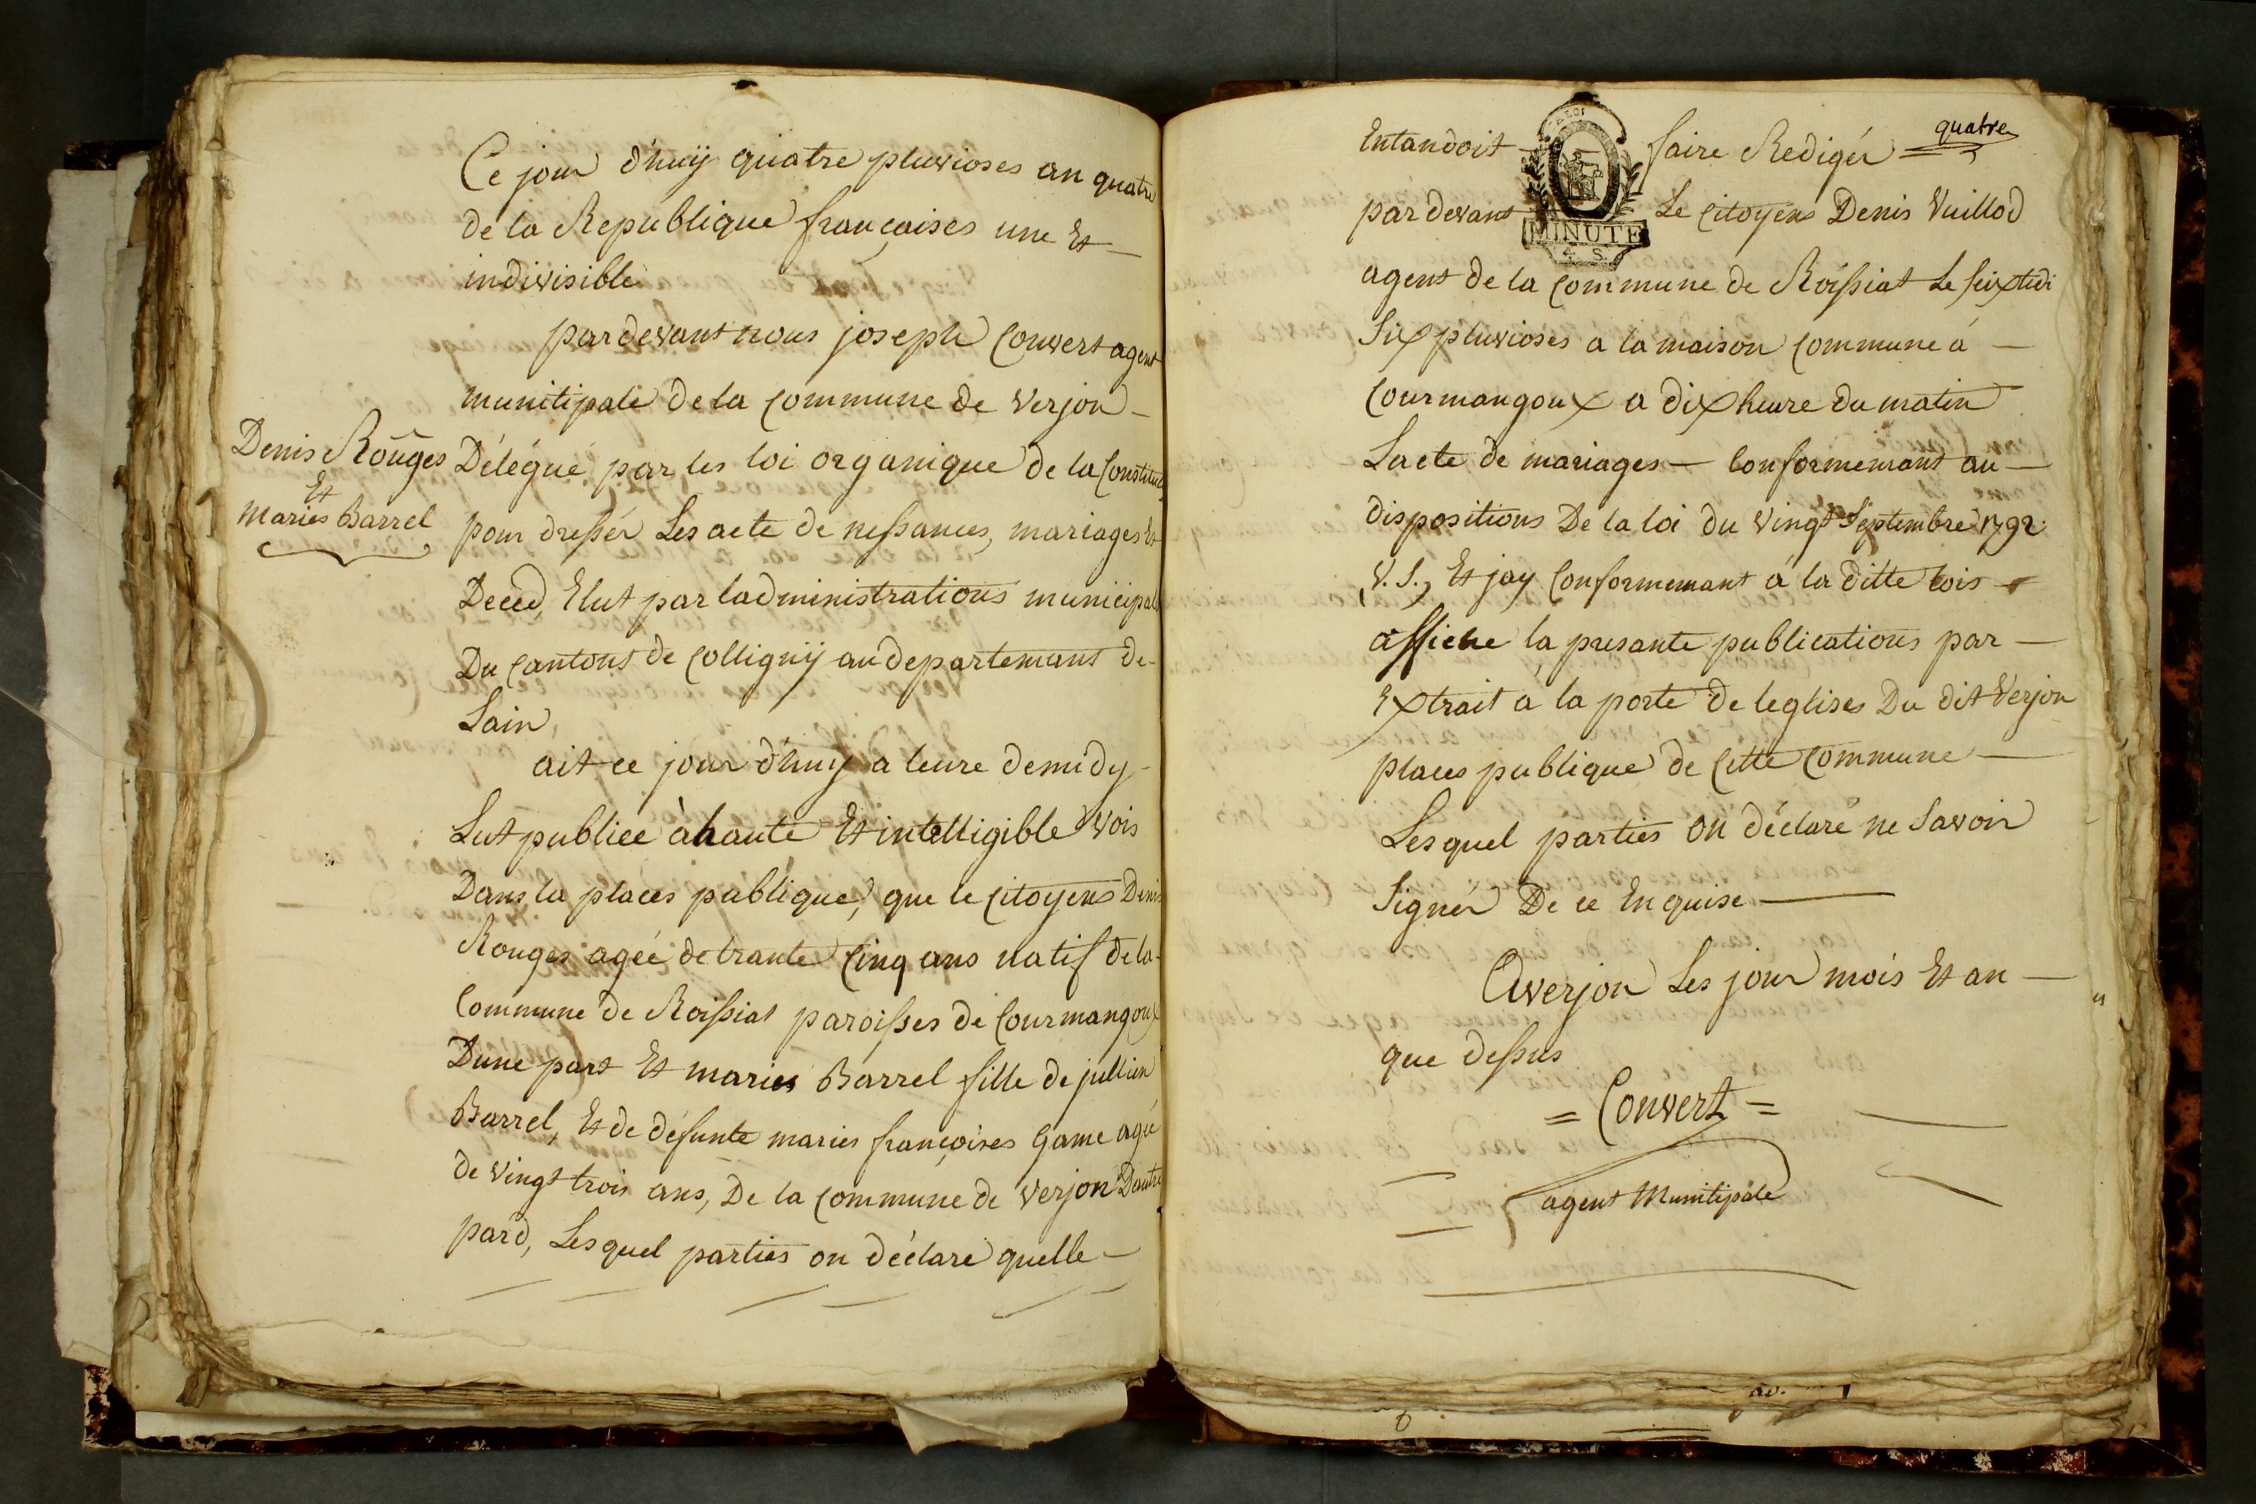 Ce jour d'huÿ quatre pluvioses an quatre
de la Republique françaises une Et
indivisible
pardevant nous joseph Convert agent
munitipale de la Commune de Verjon
Denis Rouges
Et
maries Barrel
Délégué par les loi organique de la Constitut
pour dressér Les acte de nessances, mariages Et
Decéd, Elut par ladministrations municipale
Du Cantons de Colligniÿ au departemans de
Lain,
ait ce jour d'huy a leure demidy
Lut publiee à haute Et intelligible vois
Dans la places publique, que le Citoyens Denis
Rouges agée de trante Cinq ans natif de la
Commune de Roissiat paroisses de Courmangoux
Dune part Et maries Barrel fille de jullien
Barrel, Et de défunte maries françoises Game agée
de vingt trois ans, De la Commune de Verjon Dautre
pard, Lesquel parties on déclaré quelle
quatre
Entandoit faire Redigér
MINUTE
par devant Le Citoyens Denis Vuillod
agent de la Commune de Roissiat Le seixtidi
Six pluvioses a la maison Commune á
Courmangoux a dix heure du matin
Lacte de mariages Conformemant au
dispositions De la loi du vingt Septembre 1792
V.S., Et jay Conformemant á la ditte Lois
affiche la presante publications par
Extrait á la porte de leglises Du dit Verjon
places publique de Cette Commune
Lesquel parties on déclaré ne Savoir
Signér De ce Enquise
A verjon Les jour mois Et an
que dessus
= Convert =
agent Munitipale